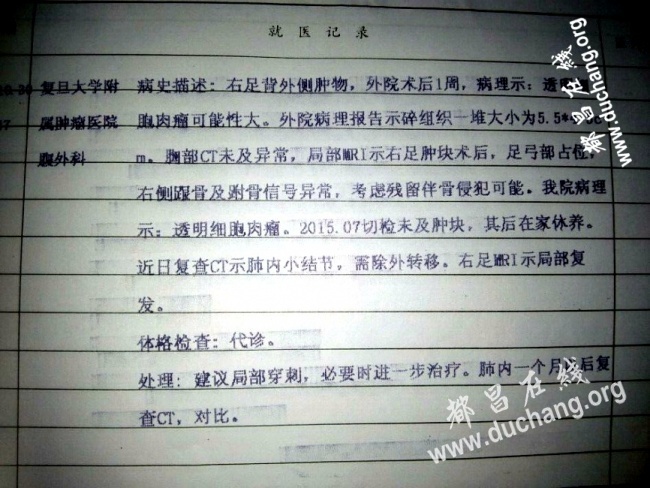 就医记录
复旦大学附 病史描述：右足背外侧肿物，外院术后1周，病理示：透明
属肿瘤医院 胞肉瘤可能性大。外院病理报告示碎组织一堆大小为5.5*
腹外科 m。胸部CT未及异常，局部MRI示右足肿块术后，足弓部占位，
右侧跟骨及跗骨信号异常，考虑残留伴骨侵犯可能。我院病理
示：透明细胞肉瘤。2015.07切检未及肿块，其后在家休养。
近日复查CT示肺内小结节，需除外转移。右足MRI示局部复
发。
体格检查：代诊。
处理：建议局部穿刺，必要时进一步治疗。肺内一个月后复
查CT，对比。
都昌在线
www.duchang.org
都昌在线
www.duchang.org